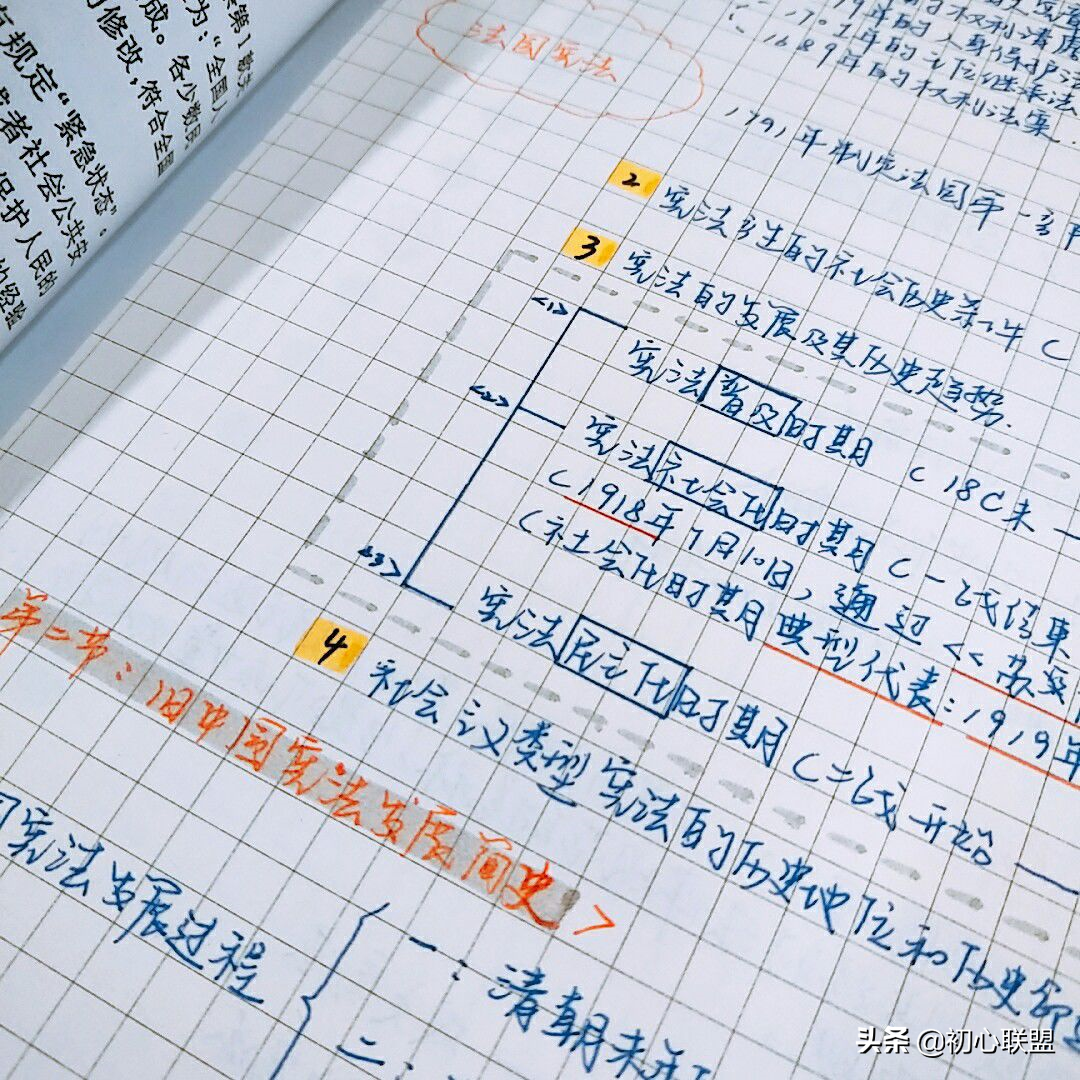 紧急状态”。
有规定“紧急状态”
或者社会公共安
保护人民的
为：“全国人
成。各少数民
的修改，符合全国
法国宪法
年的人身保护法
1701年的王位继承法
1689年的权利法案.
1791年制宪法国第一部
2 宪法产生的社会历史条件 (
3 宪法的发展及其历史趋势.
<1> 宪法普及时期 (18C末 —
<2> 宪法社会化时期 (一战结束
(1918年7月10日, 通过<<苏俄
(社会化时期典型代表: 1919年
<3> 宪法民主化时期 (二战开始 —
4 社会主义类型宪法的历史地位和历史命运
第二节: 旧中国宪法发展简史>
国宪法发展过程
一: 清朝末年
二:
头条 @初心联盟